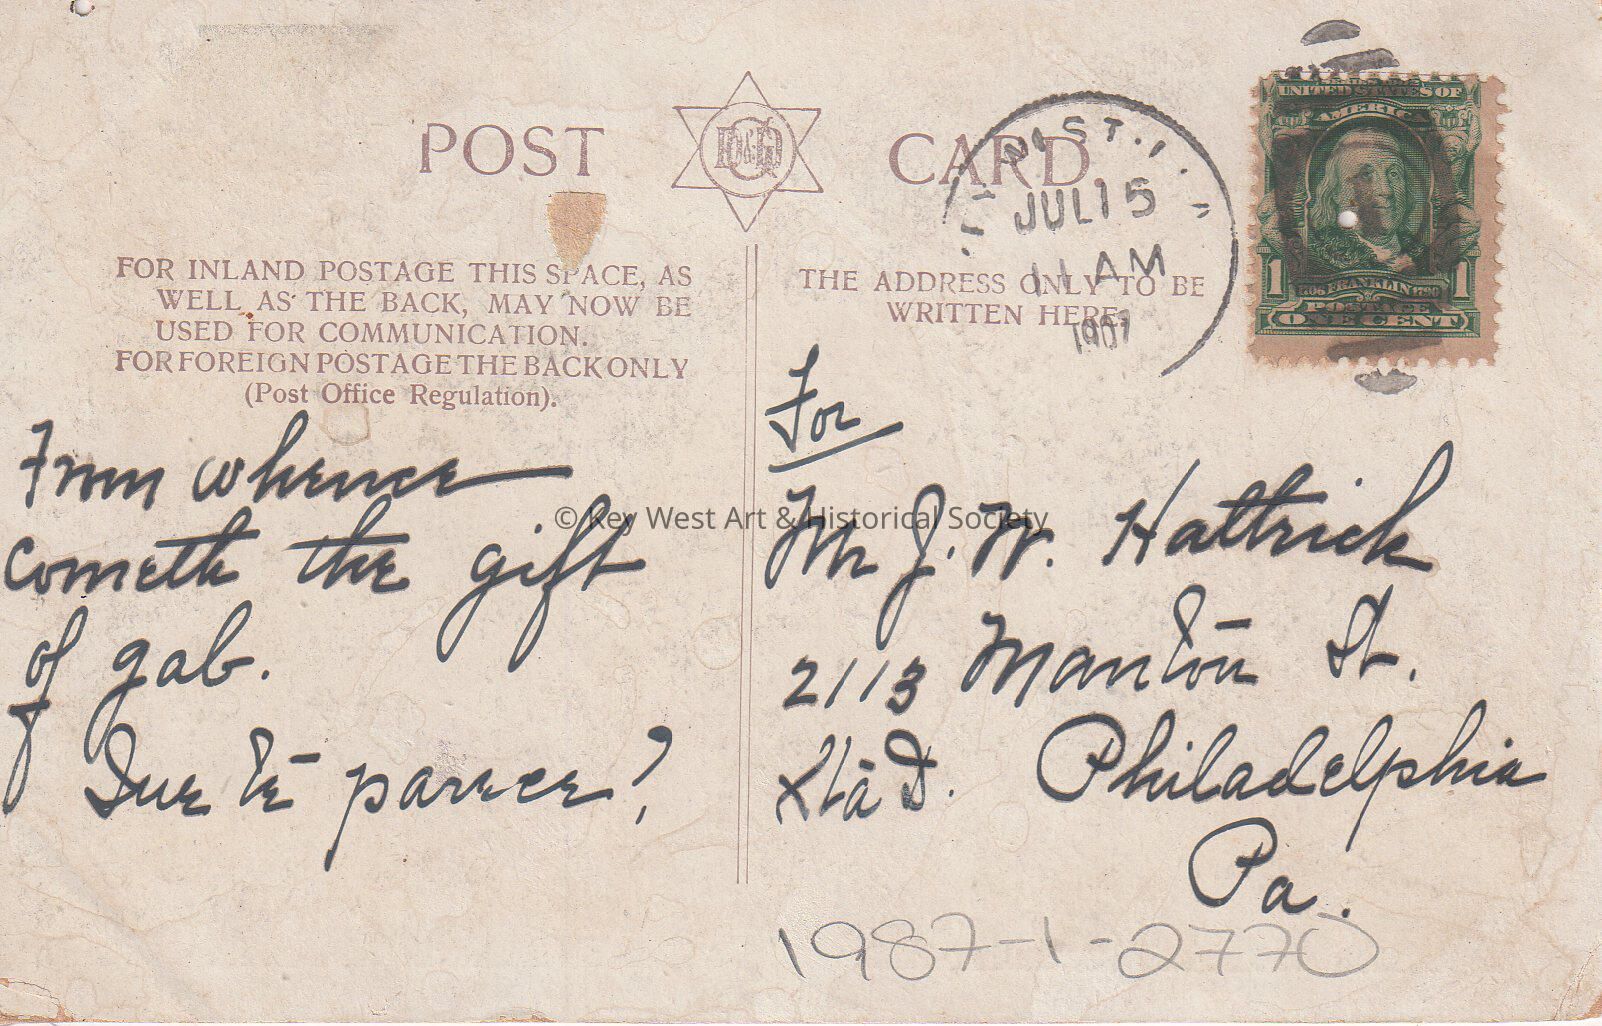 POST CARD.
D&D
G
FOR INLAND POSTAGE THIS SPACE, AS
WELL AS THE BACK, MAY NOW BE
USED FOR COMMUNICATION.
FOR FOREIGN POSTAGE THE BACK ONLY
(Post Office Regulation).
From whence
cometh the gift
of gab.
THE ADDRESS ONLY TO BE
WRITTEN HERE.
JUL 15
11 AM
1907
UNITED STATES OF
AMERICA
1 1
1706 FRANKLIN 1790
POSTAGE
ONE CENT
For
Mr J. W. Hattrick
2113 Manton St.
Sta D. Philadelphia
Pa.
1987-1-2770
© Key West Art & Historical Society